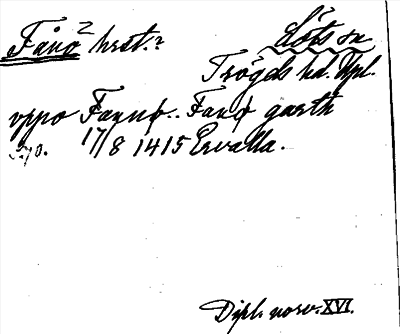 Fånö 2 hrst.? Löts sn
Trögds hd. Upl.
vppo Faunø.. Fanø garth
17/8 1415 Ervalla.
Dipl. norv. XVI.